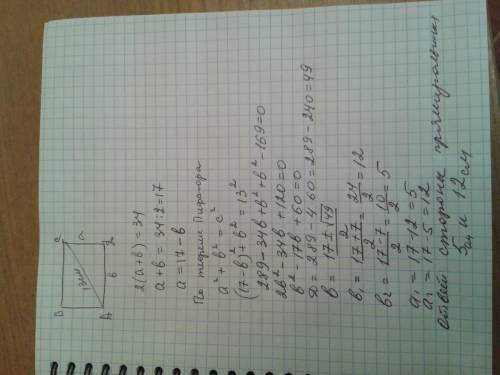 B
C
13см
a
A
b
D
2(a+b) = 34
a+b = 34:2 = 17
a = 17-b
По теореме Пифагора
a² + b² = c²
(17-b)² + b² = 13²
289 - 34b + b² + b² - 169 = 0
2b² - 34b + 120 = 0
b² - 17b + 60 = 0
D = 289 - 4·60 = 289 - 240 = 49
b = (17 ± √49)/2
b₁ = (17+7)/2 = 24/2 = 12
b₂ = (17-7)/2 = 10/2 = 5
a₁ = 17-12 = 5
a₂ = 17-5 = 12
Ответ стороны прямоугольника
5см и 12см